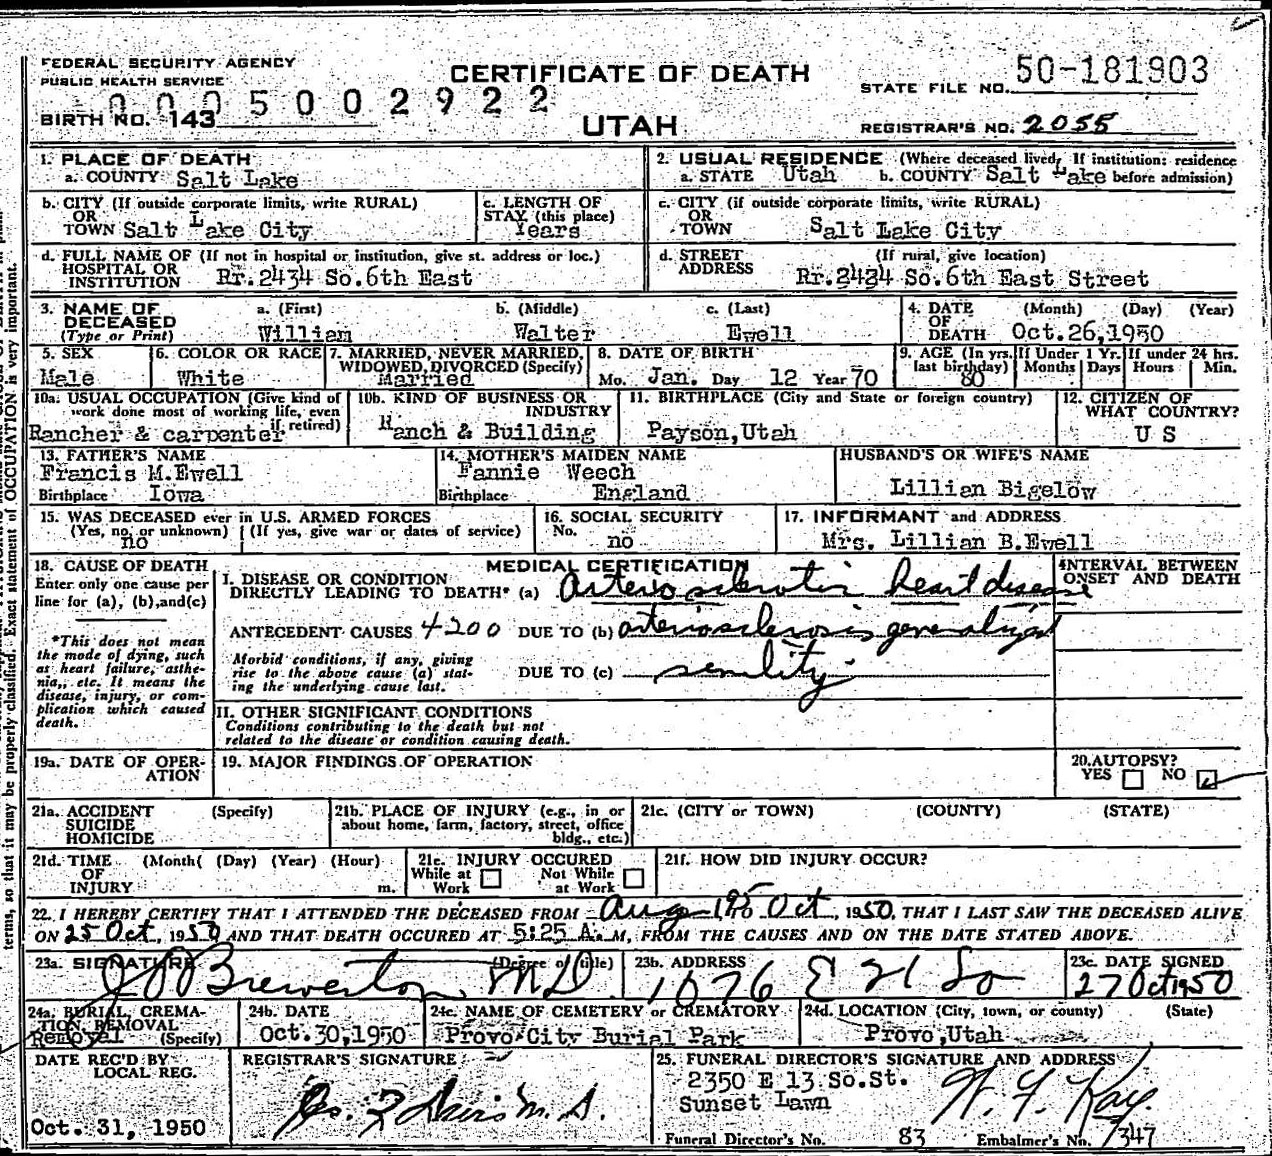 FEDERAL SECURITY AGENCY
PUBLIC HEALTH SERVICE
CERTIFICATE OF DEATH
STATE FILE NO. 50-181903
0005002922
BIRTH NO. 143
UTAH
REGISTRAR'S NO. 2055
1. PLACE OF DEATH
a. COUNTY Salt Lake
2. USUAL RESIDENCE (Where deceased lived, If institution: residence before admission)
a. STATE Utah b. COUNTY Salt Lake
b. CITY (If outside corporate limits, write RURAL)
OR
TOWN Salt Lake City
c. LENGTH OF
STAY (this place)
Years
c. CITY (if outside corporate limits, write RURAL)
OR
TOWN Salt Lake City
d. FULL NAME OF (If not in hospital or institution, give st. address or loc.)
HOSPITAL OR
INSTITUTION Rr.2434 So.6th East
d. STREET (If rural, give location)
ADDRESS Rr.2434 So.6th East Street
3. NAME OF
DECEASED
(Type or Print)
a. (First) b. (Middle) c. (Last)
William Walter Ewell
4. DATE (Month) (Day) (Year)
OF
DEATH Oct.26,1950
5. SEX
Male
6. COLOR OR RACE
White
7. MARRIED, NEVER MARRIED,
WIDOWED, DIVORCED (Specify)
Married
8. DATE OF BIRTH
Mo. Jan. Day 12 Year 70
9. AGE (In yrs. last birthday)
80
If Under 1 Yr.
Months Days
If under 24 hrs.
Hours Min.
10a. USUAL OCCUPATION (Give kind of
work done most of working life, even
if retired)
Rancher & carpenter
10b. KIND OF BUSINESS OR
INDUSTRY
Ranch & Building
11. BIRTHPLACE (City and State or foreign country)
Payson,Utah
12. CITIZEN OF
WHAT COUNTRY?
U S
13. FATHER'S NAME
Francis M.Ewell
Birthplace Iowa
14. MOTHER'S MAIDEN NAME
Fannie Weech
Birthplace England
HUSBAND'S OR WIFE'S NAME
Lillian Bigelow
15. WAS DECEASED ever in U.S. ARMED FORCES
(Yes, no, or unknown) (If yes, give war or dates of service)
no
16. SOCIAL SECURITY
No. no
17. INFORMANT and ADDRESS
Mrs. Lillian B.Ewell
18. CAUSE OF DEATH
Enter only one cause per
line for (a), (b),and(c)
*This does not mean
the mode of dying, such
as heart failure, asthe-
nia,, etc. It means the
disease, injury, or com-
plication which caused
death.
MEDICAL CERTIFICATION
INTERVAL BETWEEN
ONSET AND DEATH
I. DISEASE OR CONDITION
DIRECTLY LEADING TO DEATH* (a) Arterio sclerotic heart disease
ANTECEDENT CAUSES 4200 DUE TO (b) arteriosclerosis generalized
Morbid conditions, if any, giving
rise to the above cause (a) stat-
ing the underlying cause last.
DUE TO (c) senility
II. OTHER SIGNIFICANT CONDITIONS
Conditions contributing to the death but not
related to the disease or condition causing death.
19a. DATE OF OPER-
ATION
19. MAJOR FINDINGS OF OPERATION
20. AUTOPSY?
YES NO
21a. ACCIDENT (Specify)
SUICIDE
HOMICIDE
21b. PLACE OF INJURY (e.g., in or
about home, farm, factory, street, office
bldg., etc.)
21c. (CITY or TOWN) (COUNTY) (STATE)
21d. TIME (Month( (Day) (Year) (Hour)
OF
INJURY m.
21e. INJURY OCCURED
While at Work Not While at Work
21f. HOW DID INJURY OCCUR?
22. I HEREBY CERTIFY THAT I ATTENDED THE DECEASED FROM Aug Oct, 1950, THAT I LAST SAW THE DECEASED ALIVE
ON 25 Oct, 1950 AND THAT DEATH OCCURED AT 5:25 A.M, FROM THE CAUSES AND ON THE DATE STATED ABOVE.
23a. SIGNATURE (Degree or title)
Brewerton M.D.
23b. ADDRESS
1076 E 21 So
23c. DATE SIGNED
27 Oct 1950
24a. BURIAL, CREMA-
TION, REMOVAL
(Specify)
Removal
24b. DATE
Oct.30,1950
24c. NAME OF CEMETERY or CREMATORY
Provo City Burial Park
24d. LOCATION (City, town, or county) (State)
Provo,Utah
DATE REC'D BY
LOCAL REG.
Oct. 31, 1950
REGISTRAR'S SIGNATURE
25. FUNERAL DIRECTOR'S SIGNATURE AND ADDRESS
2350 E 13 So.St.
Sunset Lawn
W. F. Kay.
Funeral Director's No. 83 Embalmer's No. 347
terms, so that it may be properly classified. Exact statement of OCCUPATION is very important.